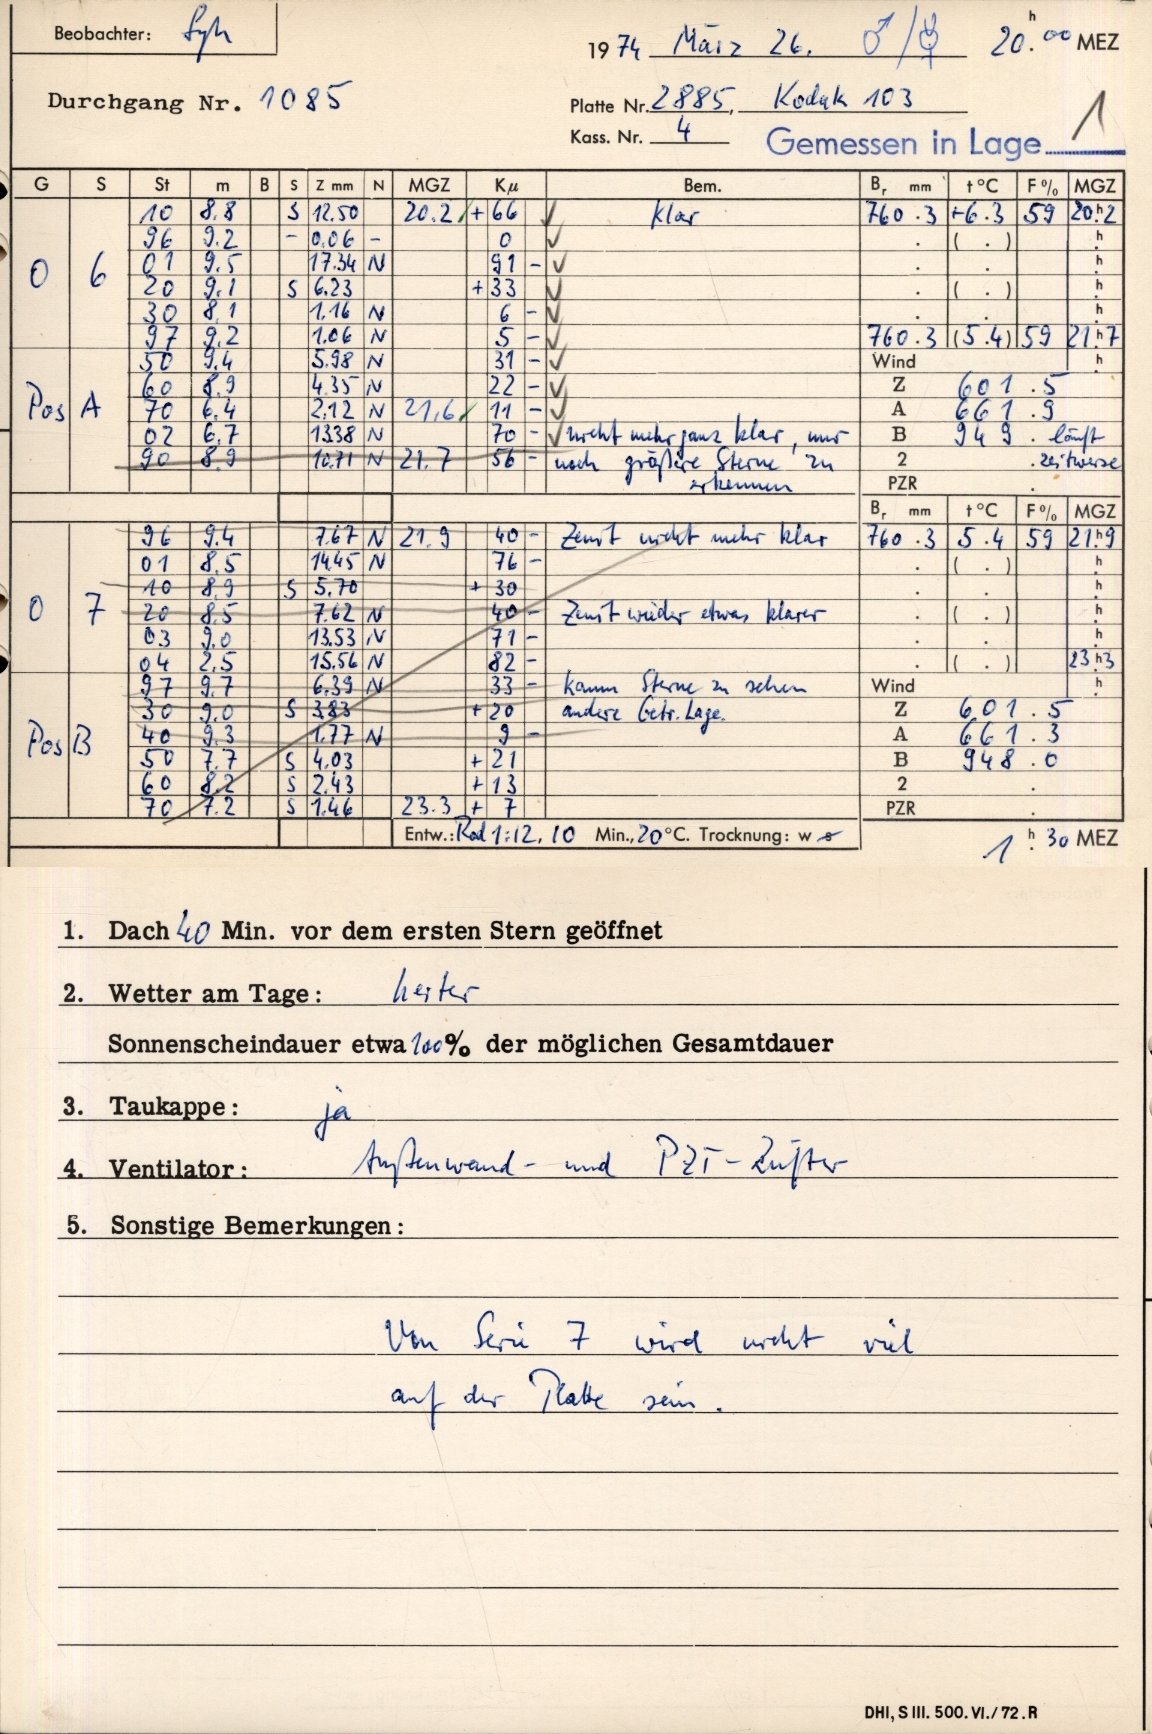 Beobachter: Syh
1974 März 26. ♂/☿ 20.ʰ00 MEZ
Durchgang Nr. 1085
Platte Nr. 2885, Kodak 103
Kass. Nr. 4
Gemessen in Lage 1
G S St m B S Z mm N MGZ Kμ Bem. Br mm t°C F% MGZ
10 8.8 S 12.50 20.2 ✓ +66 ✓ klar 760.3 +6.3 59 20ʰ.2
96 9.2 - 0.06 - 0 ✓ . ( . ) ʰ.
0 6 01 9.5 17.34 N 91 - ✓ . . ʰ.
20 9.1 S 6.23 +33 ✓ . ( . ) ʰ.
30 8.1 1.16 N 6 - ✓ . . ʰ.
97 9.2 1.06 N 5 - ✓ 760.3 (5.4) 59 21ʰ.7
50 9.4 5.98 N 31 - ✓ Wind ʰ.
60 8.9 4.35 N 22 - ✓ Z 601.5
Pos A 70 6.4 2.12 N 21.6 ✓ 11 - ✓ A 661.9
02 6.7 13.38 N 70 - ✓ nicht mehr ganz klar, nur B 949. läuft
90 8.9 10.71 N 21.7 56 - noch größere Sterne zu 2 . zeitweise
erkennen PZR .
Br mm t°C F% MGZ
96 9.4 7.67 N 21.9 40 - Zenit nicht mehr klar 760.3 5.4 59 21ʰ.9
01 8.5 14.45 N 76 - . ( . ) ʰ.
10 8.9 S 5.70 +30 . . ʰ.
0 7 20 8.5 7.62 N 40 - Zenit wieder etwas klarer . ( . ) ʰ.
03 9.0 13.53 N 71 - . . ʰ.
04 2.5 15.56 N 82 - . ( . ) 23ʰ.3
97 9.7 6.39 N 33 - kaum Sterne zu sehen Wind ʰ.
30 9.0 S 3.83 +20 andere betr. Lage. Z 601.5
Pos B 40 9.3 1.77 N 9 - A 661.3
50 7.7 S 4.03 +21 B 948.0
60 8.2 S 2.43 +13 2 .
70 7.2 S 1.46 23.3 + 7 PZR .
Entw.: Rod 1:12, 10 Min., 20°C. Trocknung: w s 1ʰ.30 MEZ
1. Dach 40 Min. vor dem ersten Stern geöffnet
2. Wetter am Tage: heiter
Sonnenscheindauer etwa 100% der möglichen Gesamtdauer
3. Taukappe: ja
4. Ventilator: Außenwand- und PZT-Lüfter
5. Sonstige Bemerkungen:
Von Serie 7 wird nicht viel
auf der Platte sein.
DHI, S III. 500. VI./72. R